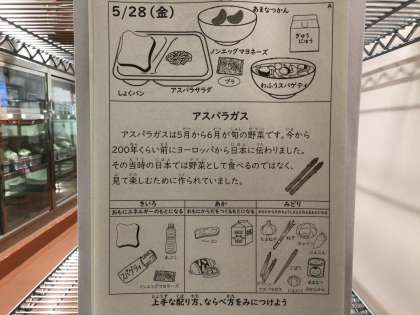 5/28(金)
A
あまなつかん
ぎゅう
にゅう
ノンエッグマヨネーズ
プラ
しょくパン
アスパラサラダ
わふうスパゲティ
アスパラガス
アスパラガスは5月から6月が旬の野菜です。今から
200年くらい前にヨーロッパから日本に伝わりました。
その当時の日本では野菜として食べるのではなく、
見て楽しむために作られていました。
きいろ
あか
みどり
おもにエネルギーのもとになる
おもにからだをつくるもとになる
スパゲティ
あぶら
ノンエッグマヨネーズ
ベーコン
たまねぎ
ねぎ
にんじん
ごぼう
アスパラガス
上手な配り方、ならべ方をみにつけよう